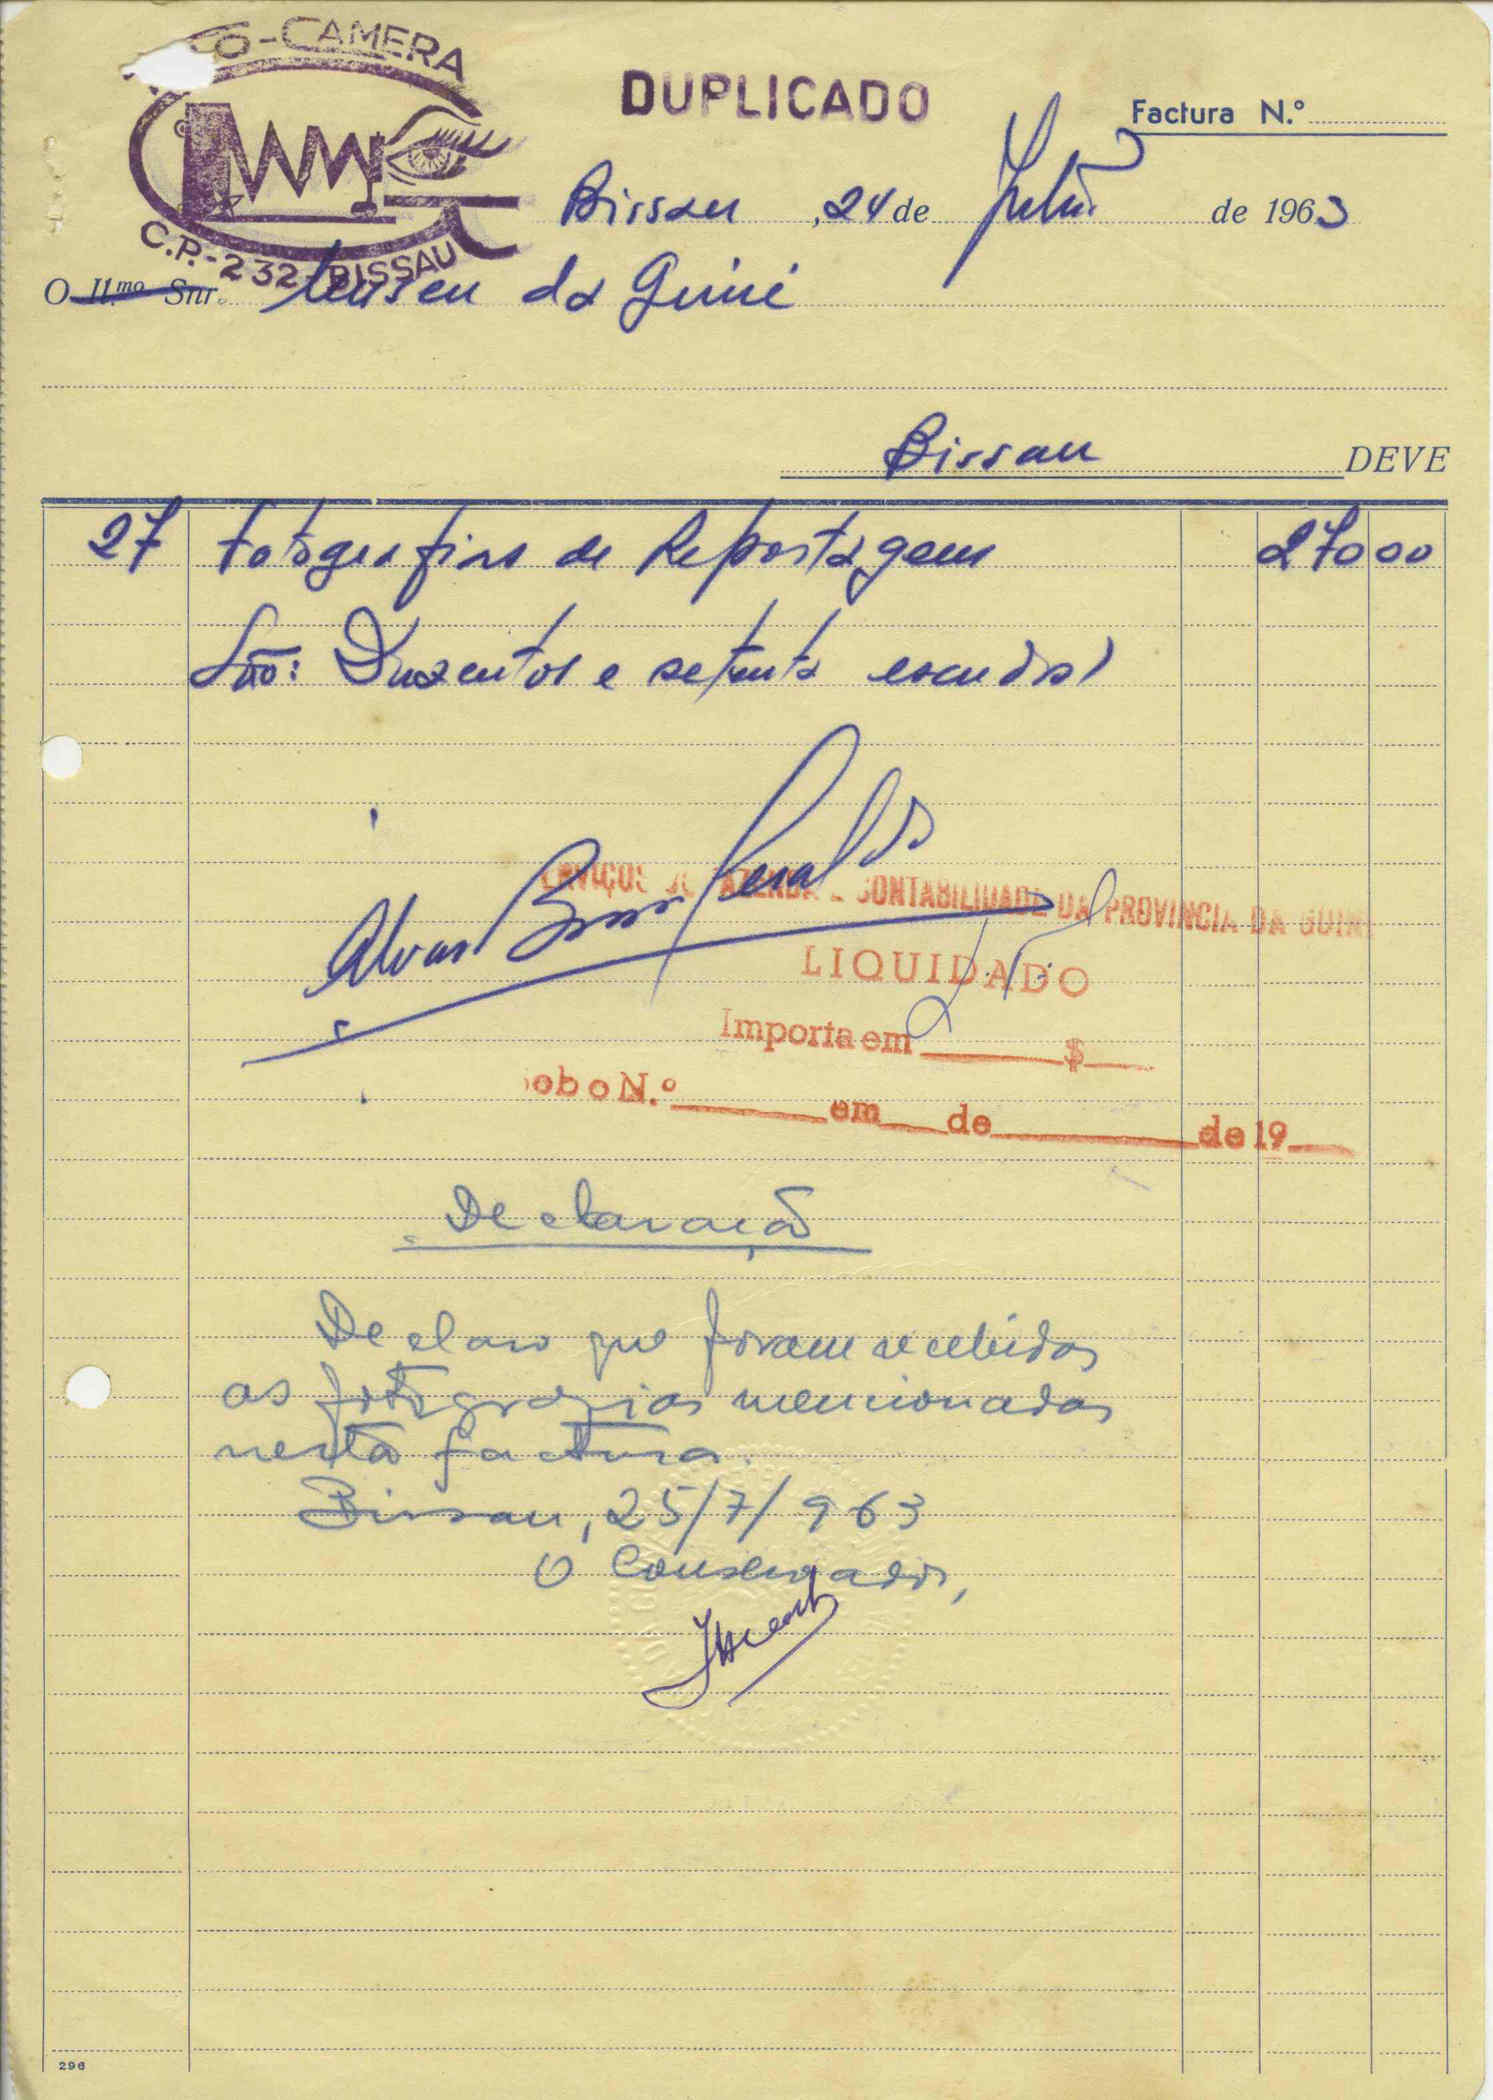 O-CAMERA
C.P.-232-BISSAU
DUPLICADO
Factura N.º
Bissau, 24 de Julho de 1963
O Il.mo Snr. Museu da Guiné
Bissau DEVE
27 Fotografias de Reportagem 270 00
São: Duzentos e setenta escudos)
Álvaro
CONTABILIDADE DA PROVINCIA DA GUIN
LIQUIDADO
Importa em $
obo N.º em de de 19
Declaração
Declaro que foram recebidas
as fotografias mencionadas
nesta factura.
Bissau, 25/7/963
O Conservador,
296